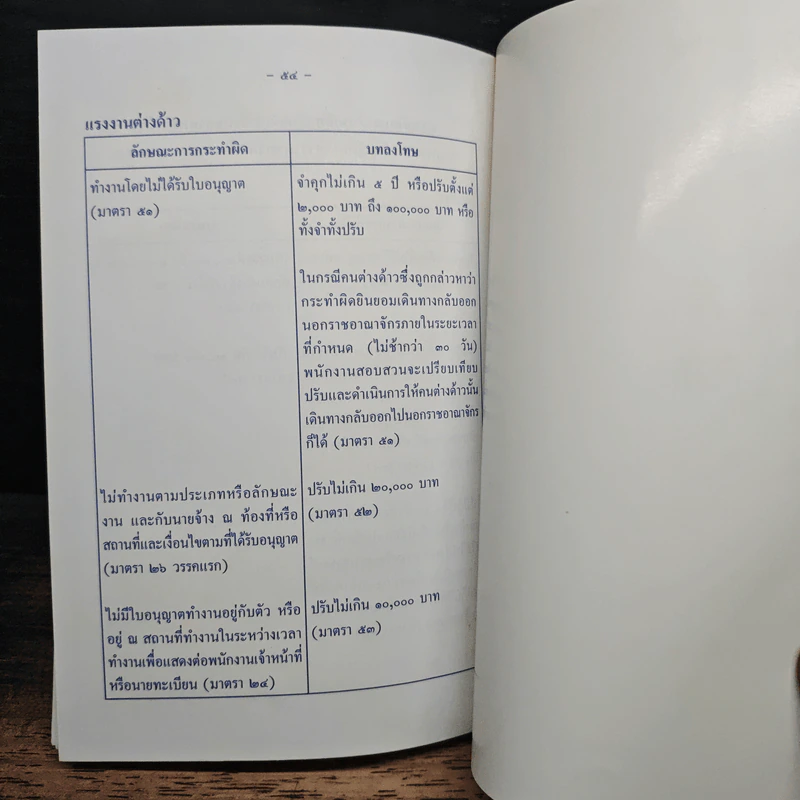 - ๕๔ -
แรงงานต่างด้าว
ลักษณะการกระทำผิด
บทลงโทษ
ทำงานโดยไม่ได้รับใบอนุญาต
(มาตรา ๕๑)
จำคุกไม่เกิน ๕ ปี หรือปรับตั้งแต่
๒,๐๐๐ บาท ถึง ๑๐๐,๐๐๐ บาท หรือ
ทั้งจำทั้งปรับ
ในกรณีคนต่างด้าวซึ่งถูกกล่าวหาว่า
กระทำผิดยินยอมเดินทางกลับออก
นอกราชอาณาจักรภายในระยะเวลา
ที่กำหนด (ไม่ช้ากว่า ๓๐ วัน)
พนักงานสอบสวนจะเปรียบเทียบ
ปรับและดำเนินการให้คนต่างด้าวนั้น
เดินทางกลับออกไปนอกราชอาณาจักร
ก็ได้ (มาตรา ๕๑)
ไม่ทำงานตามประเภทหรือลักษณะ
งาน และกับนายจ้าง ณ ท้องที่หรือ
สถานที่และเงื่อนไขตามที่ได้รับอนุญาต
(มาตรา ๒๖ วรรคแรก)
ปรับไม่เกิน ๒๐,๐๐๐ บาท
(มาตรา ๕๒)
ไม่มีใบอนุญาตทำงานอยู่กับตัว หรือ
อยู่ ณ สถานที่ทำงานในระหว่างเวลา
ทำงานเพื่อแสดงต่อพนักงานเจ้าหน้าที่
หรือนายทะเบียน (มาตรา ๒๔)
ปรับไม่เกิน ๑๐,๐๐๐ บาท
(มาตรา ๕๓)